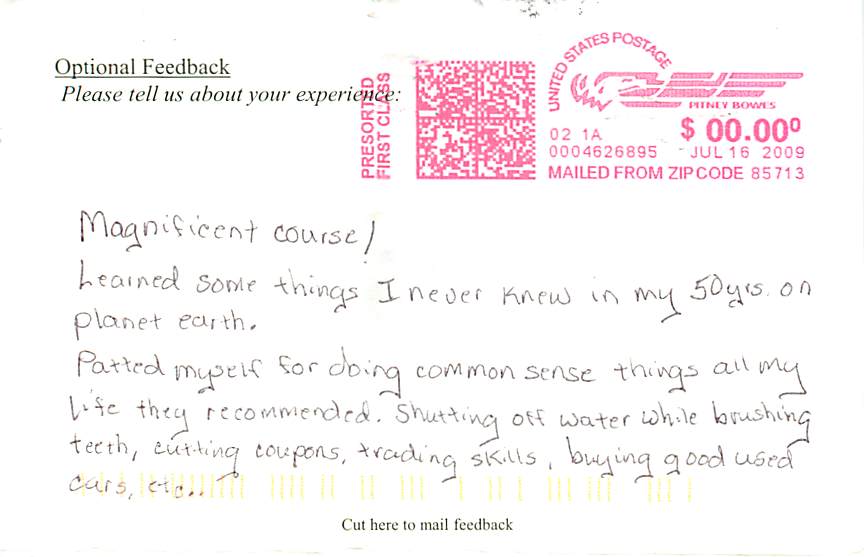 Optional Feedback
Please tell us about your experience:
PRESORTED
FIRST CLASS
UNITED STATES POSTAGE
PITNEY BOWES
02 1A
$ 00.00⁰
0004626895 JUL 16 2009
MAILED FROM ZIP CODE 85713
Magnificent course!
Learned some things I never knew in my 50yrs. on
planet earth.
Patted myself for doing common sense things all my
life they recommended. Shutting off water while brushing
teeth, cutting coupons, trading skills, buying good used
cars, etc..
Cut here to mail feedback